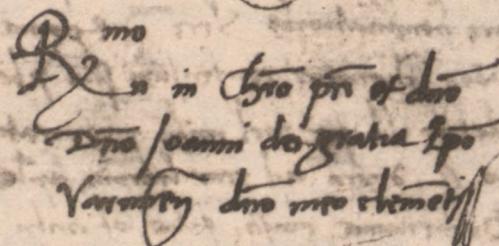 R mo
in Chro pri et dno
Dno Joanni dei gratia Epo
Varmien dno meo clementiss